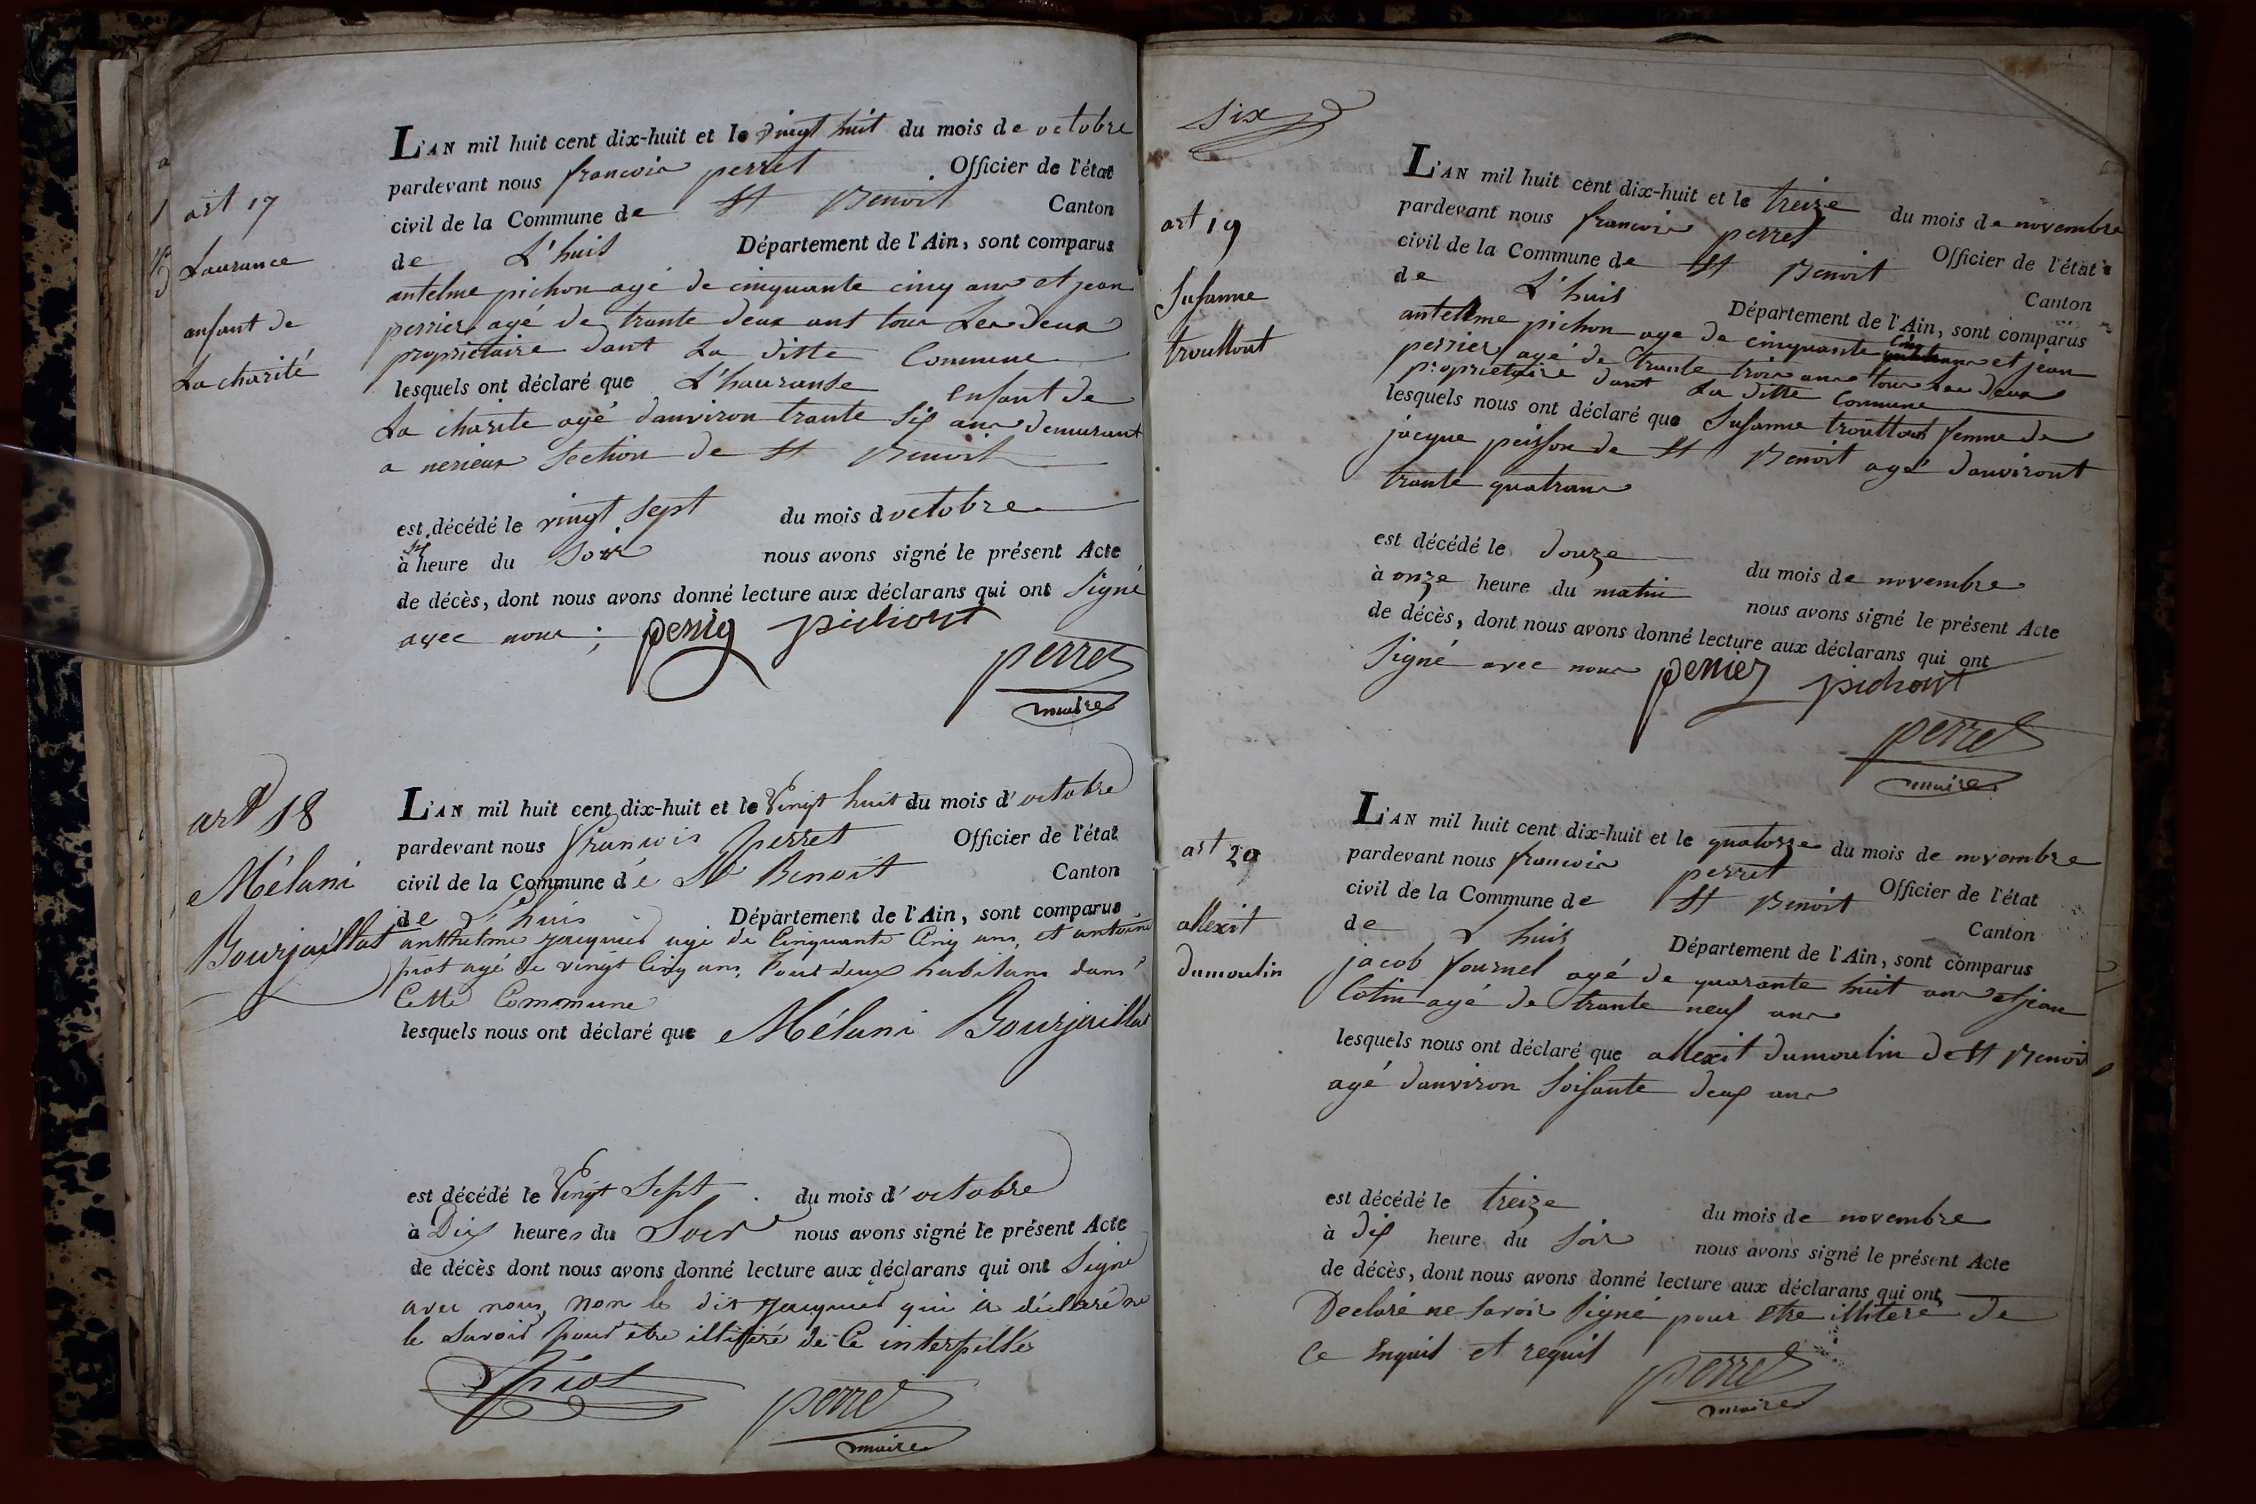 art 17
Laurance
anfant de
La charité
L'AN mil huit cent dix-huit et le vingt huit du mois de octobre
pardevant nous francois perret Officier de l'état
civil de la Commune de St Benoit Canton
de L'huis Département de l'Ain, sont comparus
antelme pichon agé de cinquante cinq ans et jean
perrier agé de trante deux ans tous Les deux
proprietaire dant La ditte Commune
lesquels ont déclaré que L'hauranse enfant de
La charite agé danviron trante six ans demurant
a nerieux Section de St Benoit
est décédé le vingt sept du mois d octobre
à six heure du Soir nous avons signé le présent Acte
de décès, dont nous avons donné lecture aux déclarans qui ont Signé
avec nous ; perrier pichont
perret
maire
art 18
Mélani
Bourjaillat
L'AN mil huit cent dix-huit et le Vingt huit du mois d'octobre
pardevant nous francois perret Officier de l'état
civil de la Commune dé St Benoit Canton
de L'huis Département de l'Ain, sont comparus
anthelme Jacquet agé de Cinquante Cinq ans, et antoine
piot agé de vingt Cinq ans, tout deux habitans dans
Cette Commune
lesquels nous ont déclaré que Mélani Bourjaillat
est décédé le Vingt Sept du mois d'octobre
à Dix heures du Soir nous avons signé le présent Acte
de décès dont nous avons donné lecture aux déclarans qui ont Signé
avec nous, non le dit Jacquet qui a déclaré ne
le Savoir pour être illitéré de Ce interpellés
piot
perret
maire
Six
art 19
Susanne
trouttout
L'AN mil huit cent dix-huit et le treize du mois de novembre
pardevant nous francois perret Officier de l'état
civil de la Commune de St Benoit Canton
de L'huis Département de l'Ain, sont comparus
antellme pichon age de cinquante cinq ans et jean
perrier agé de trante trois ans tous Les deux
proprietaire dant La ditte Commune
lesquels nous ont déclaré que Susanne trouttout femme de
jacque peisson de St Benoit agé danviront
trante quatrans
est décédé le douze du mois de novembre
à onze heure du matin nous avons signé le présent Acte
de décès, dont nous avons donné lecture aux déclarans qui ont
Signé avec nous perrier pichont
perret
maire
art 20
allexit
dumoulin
L'AN mil huit cent dix-huit et le quatorze du mois de novembre
pardevant nous francois perret Officier de l'état
civil de la Commune de St Benoit Canton
de L huis Département de l'Ain, sont comparus
jacob fournel agé de quarante huit ans et jean
Cotin agé de trante neuf ans
lesquels nous ont déclaré que allexit dumoulin de St Benoit
agé danviron Soisante deux ans
est décédé le treize du mois de novembre
à dix heure du soir nous avons signé le présent Acte
de décès, dont nous avons donné lecture aux déclarans qui ont
Declaré ne Savoir Signé pour etre illiteré de
Ce Enquis et requis
perret
maire